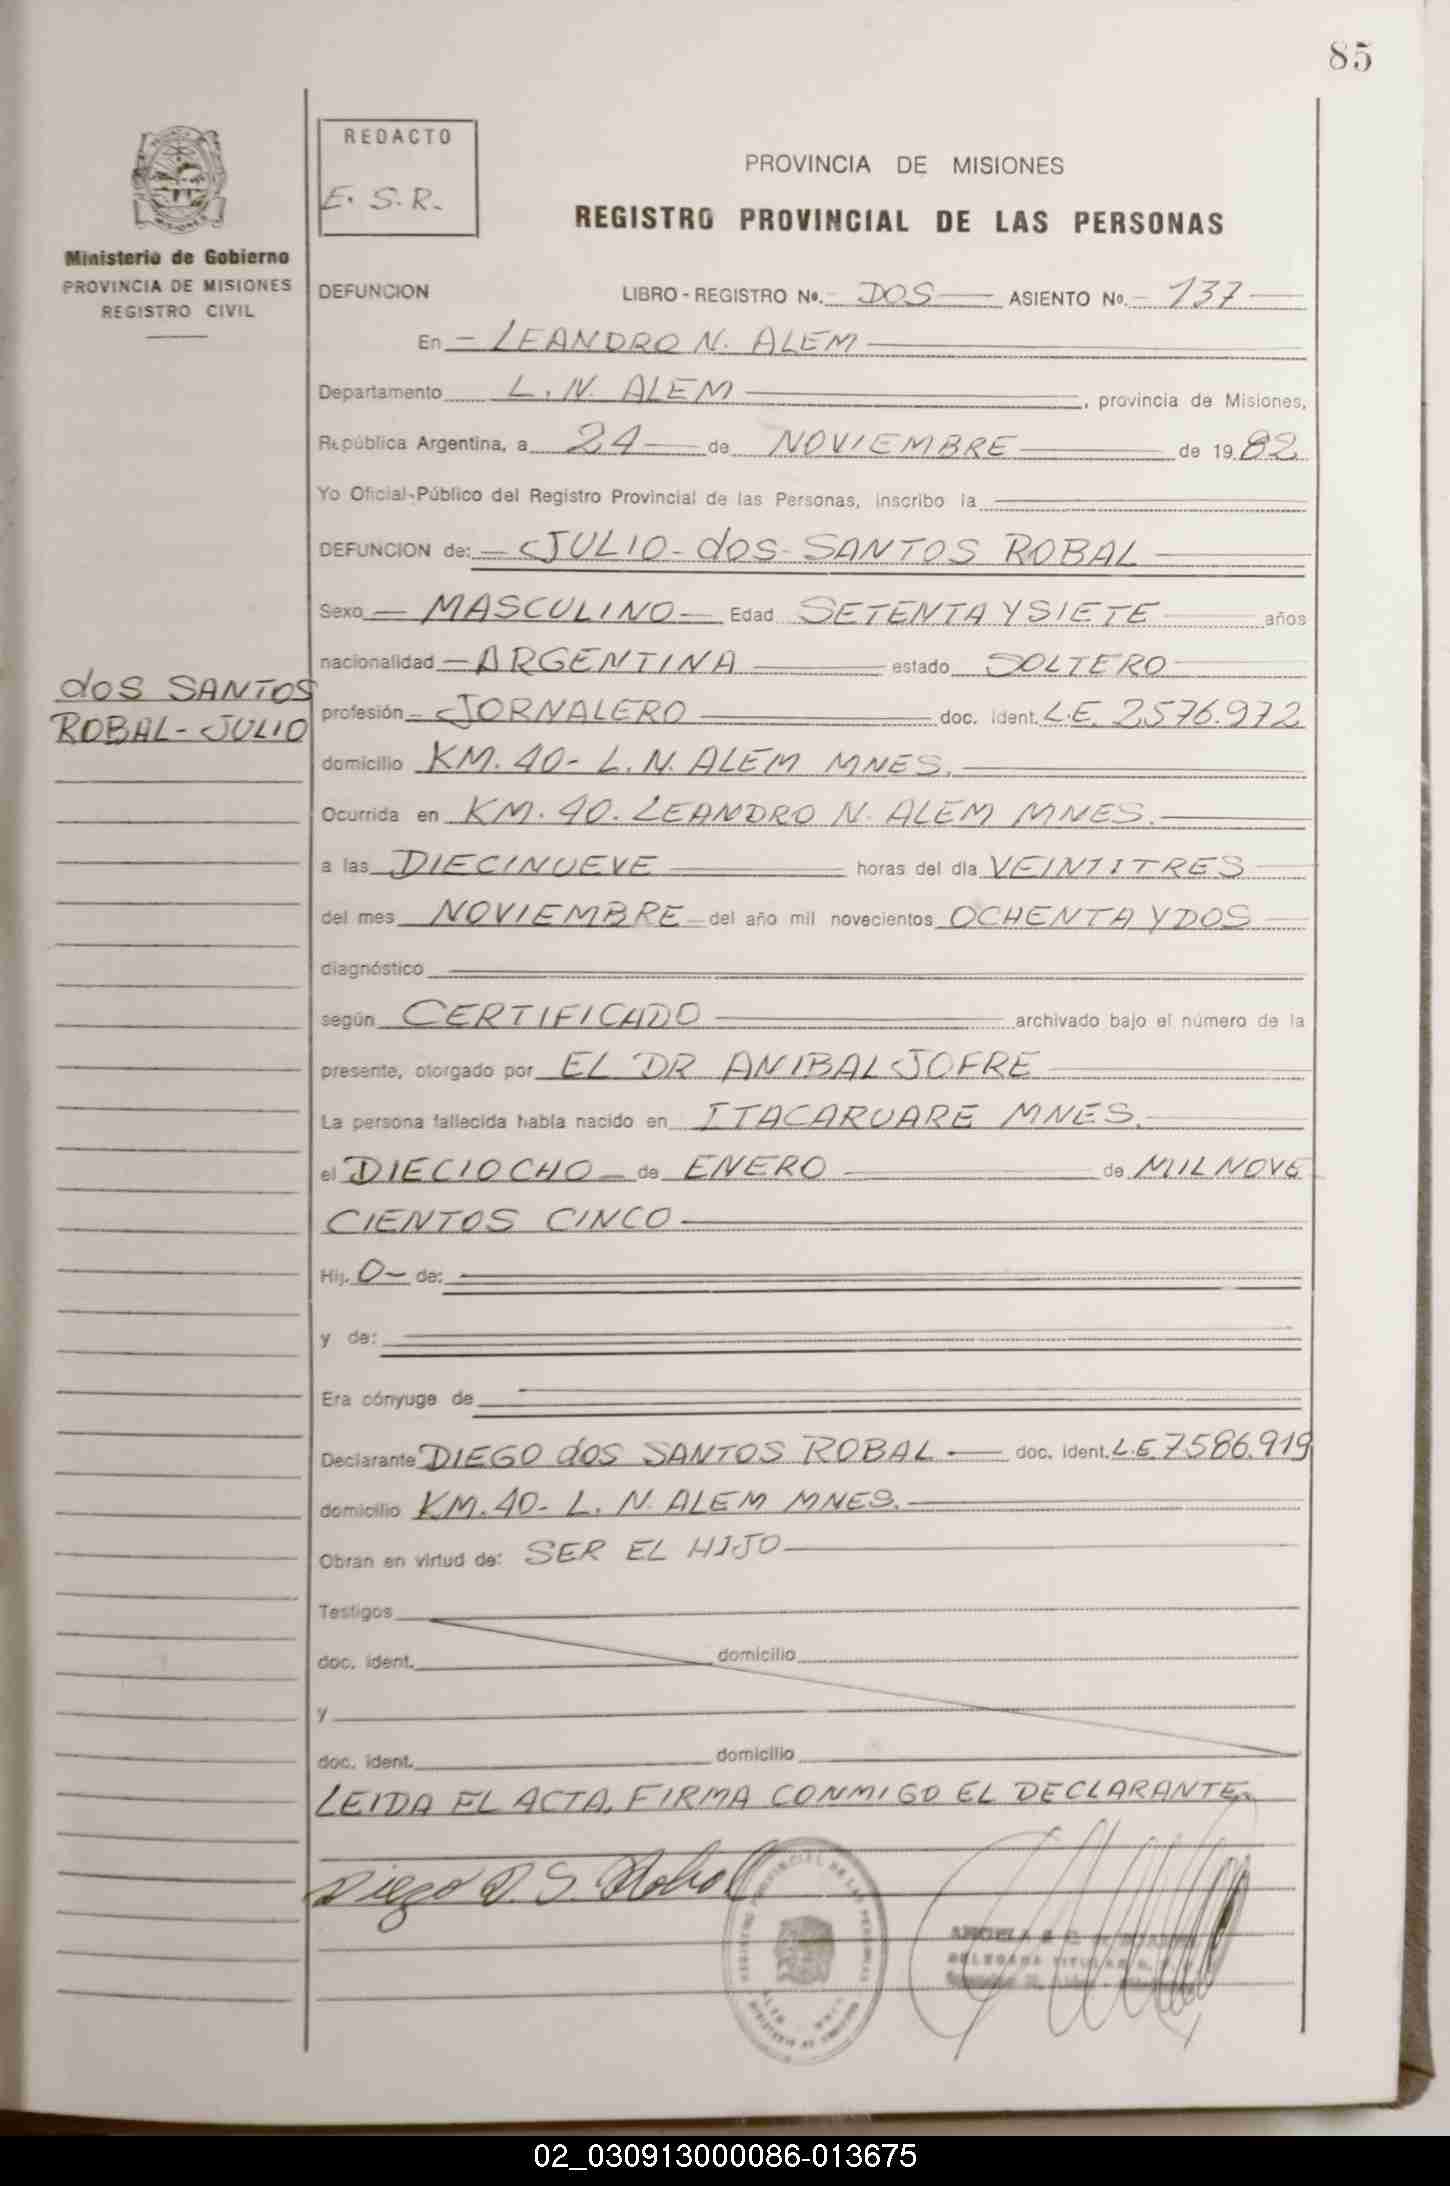 85
REDACTO
E. S. R.
PROVINCIA DE MISIONES
REGISTRO PROVINCIAL DE LAS PERSONAS
Ministerio de Gobierno
PROVINCIA DE MISIONES
REGISTRO CIVIL
DEFUNCION LIBRO - REGISTRO Nº. DOS ASIENTO Nº. 137
En LEANDRO N. ALEM
Departamento L. N. ALEM, provincia de Misiones,
República Argentina, a 24 de NOVIEMBRE de 1982
Yo Oficial-Público del Registro Provincial de las Personas, inscribo la
DEFUNCION de: JULIO dos SANTOS ROBAL
Sexo MASCULINO Edad SETENTA Y SIETE años
nacionalidad ARGENTINA estado SOLTERO
dos SANTOS
ROBAL - JULIO
profesión JORNALERO doc. ident. L.E. 2.576.972
domicilio KM. 40 - L. N. ALEM MNES.
Ocurrida en KM. 40. LEANDRO N. ALEM MNES.
a las DIECINUEVE horas del día VEINTITRES
del mes NOVIEMBRE del año mil novecientos OCHENTA Y DOS
diagnóstico
según CERTIFICADO archivado bajo el número de la
presente, otorgado por EL DR ANIBAL JOFRE
La persona fallecida había nacido en ITACARUARE MNES.
el DIECIOCHO de ENERO de MIL NOVE
CIENTOS CINCO
Hij. O de:
y de:
Era cónyuge de
Declarante DIEGO dos SANTOS ROBAL doc. ident. L.E. 7.586.919
domicilio KM. 40 - L. N. ALEM MNES.
Obran en virtud de: SER EL HIJO
Testigos
doc. ident. domicilio
y
doc. ident. domicilio
LEIDA EL ACTA, FIRMA CONMIGO EL DECLARANTE.
Diego D. S. Robal
REGISTRO PROVINCIAL DE LAS PERSONAS
02_030913000086-013675